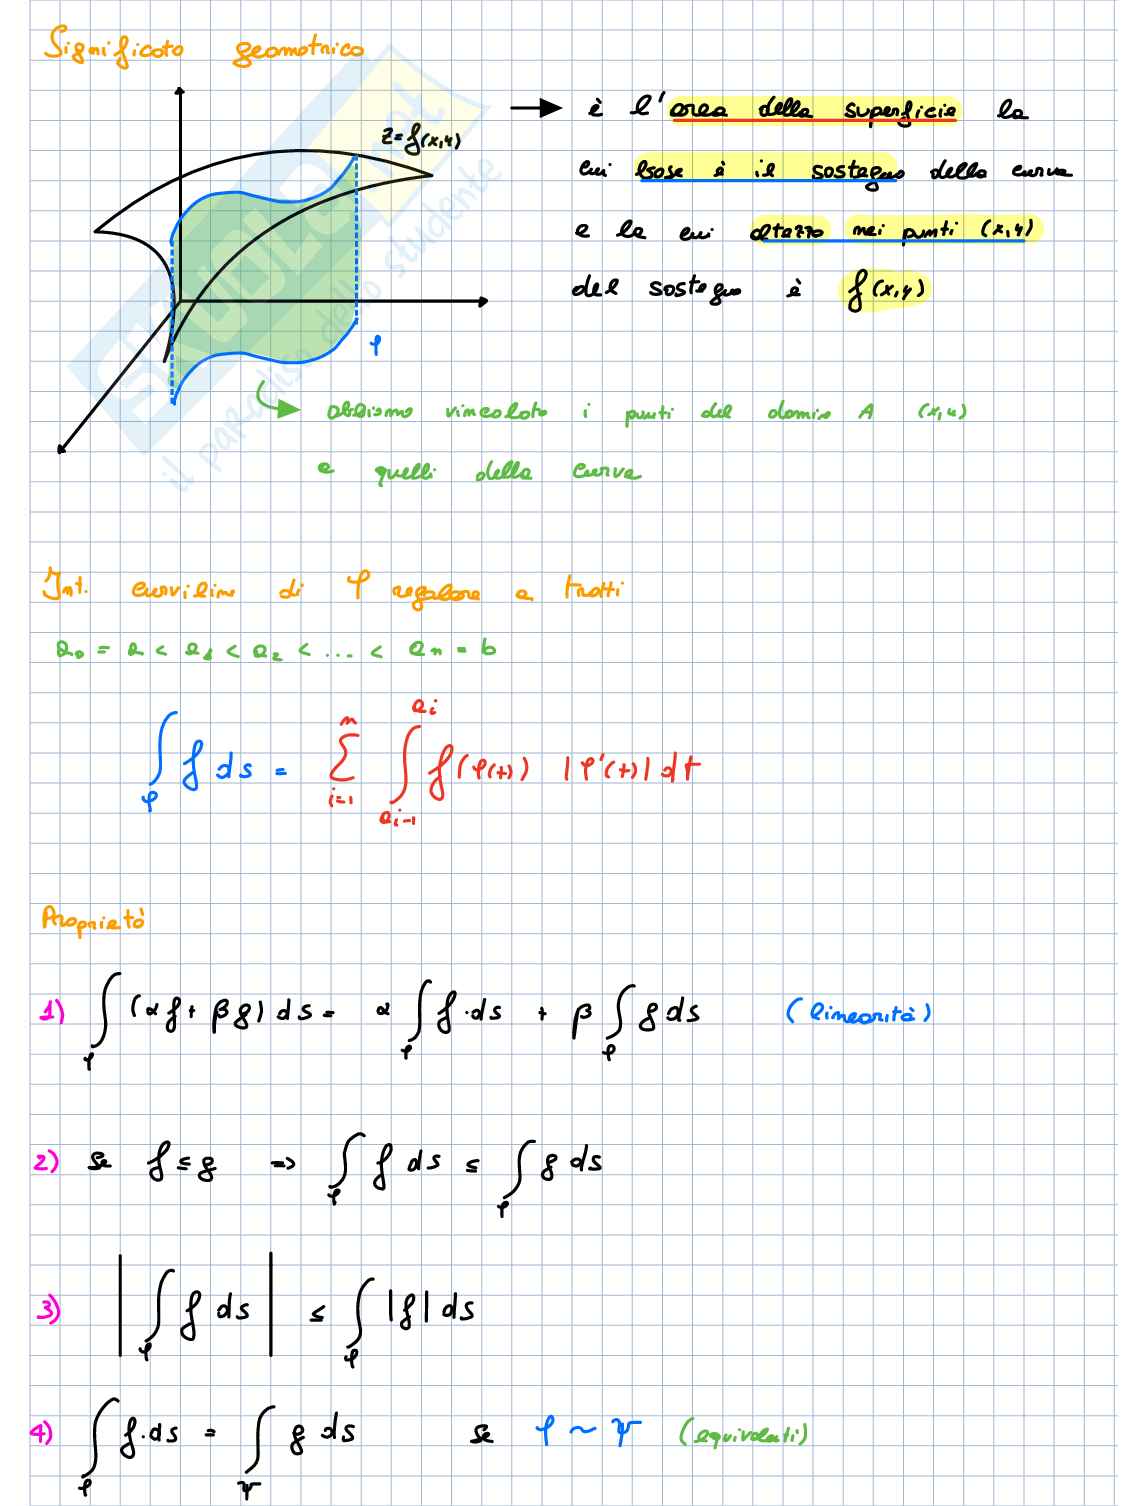 Significato geometrico
z=f(x,y)
→ è l'area della superficie la
cui base è il sostegno della curva
e la cui altezza nei punti (x,y)
del sostegno è f(x,y)
φ
abbiamo vincolato i punti del domin A (x,y)
e quelli della curva
il paradiso dello studente
Int. curvilin di φ regolare a tratti
a₀ = a < a₁ < a₂ < .... < aₙ = b
∫_φ f ds = Σ_{i=1}^{n} ∫_{a_{i-1}}^{a_i} f(φ(t)) |φ'(t)| dt
Proprietà
1) ∫_φ (αf + βg) ds = α ∫_φ f·ds + β ∫_φ g ds (linearità)
2) se f ≤ g => ∫_φ f ds ≤ ∫_φ g ds
3) |∫_φ f ds| ≤ ∫_φ |f| ds
4) ∫_φ f·ds = ∫_ψ g ds se φ ~ ψ (equivalenti)